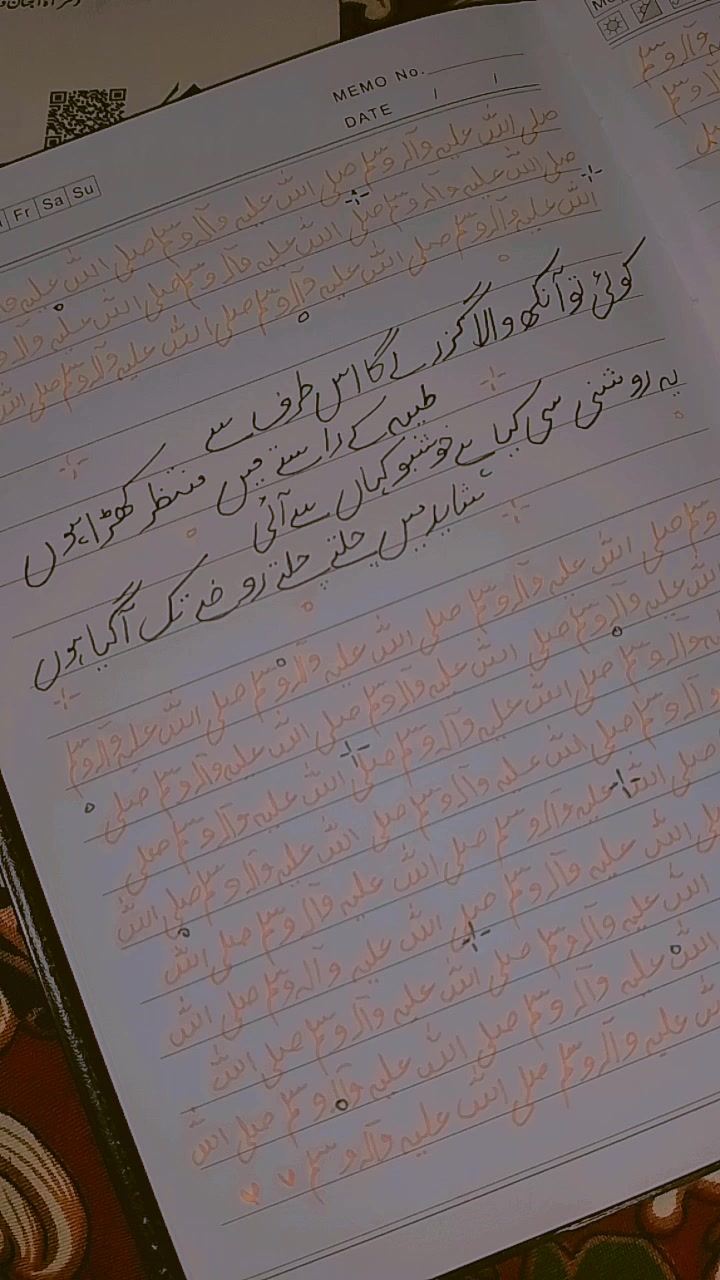 MEMO No.
DATE / /
Fr Sa Su
صلی اللہ علیہ وآلہ وسلم صلی اللہ علیہ وآلہ وسلم صلی اللہ علیہ
صلی اللہ علیہ وآلہ وسلم صلی اللہ علیہ وآلہ وسلم صلی اللہ علیہ وآلہ
اللہ علیہ وآلہ وسلم صلی اللہ علیہ وآلہ وسلم صلی اللہ علیہ وآلہ وسلم صلی اللہ
کوئی تو آنکھ والا گزرے گا اس طرف سے
طیبہ کے راستے میں منتظر کھڑا ہوں
یہ روشنی سی کیا ہے خوشبو کہاں سے آئی
شاید میں چلتے چلتے روضے تک آ گیا ہوں
وسلم صلی اللہ علیہ وآلہ وسلم صلی اللہ علیہ وآلہ وسلم صلی اللہ علیہ وآلہ وسلم
اللہ علیہ وآلہ وسلم صلی اللہ علیہ وآلہ وسلم صلی اللہ علیہ وآلہ وسلم صلی
وآلہ وسلم صلی اللہ علیہ وآلہ وسلم صلی اللہ علیہ وآلہ وسلم صلی
وآلہ وسلم صلی اللہ علیہ وآلہ وسلم صلی اللہ علیہ وآلہ وسلم صلی اللہ
صلی اللہ علیہ وآلہ وسلم صلی اللہ علیہ وآلہ وسلم صلی اللہ
صلی اللہ علیہ وآلہ وسلم صلی اللہ علیہ وآلہ وسلم صلی اللہ
اللہ علیہ وآلہ وسلم صلی اللہ علیہ وآلہ وسلم صلی اللہ
اللہ علیہ وآلہ وسلم صلی اللہ علیہ وآلہ وسلم صلی اللہ
اللہ علیہ وآلہ وسلم صلی اللہ علیہ وآلہ وسلم